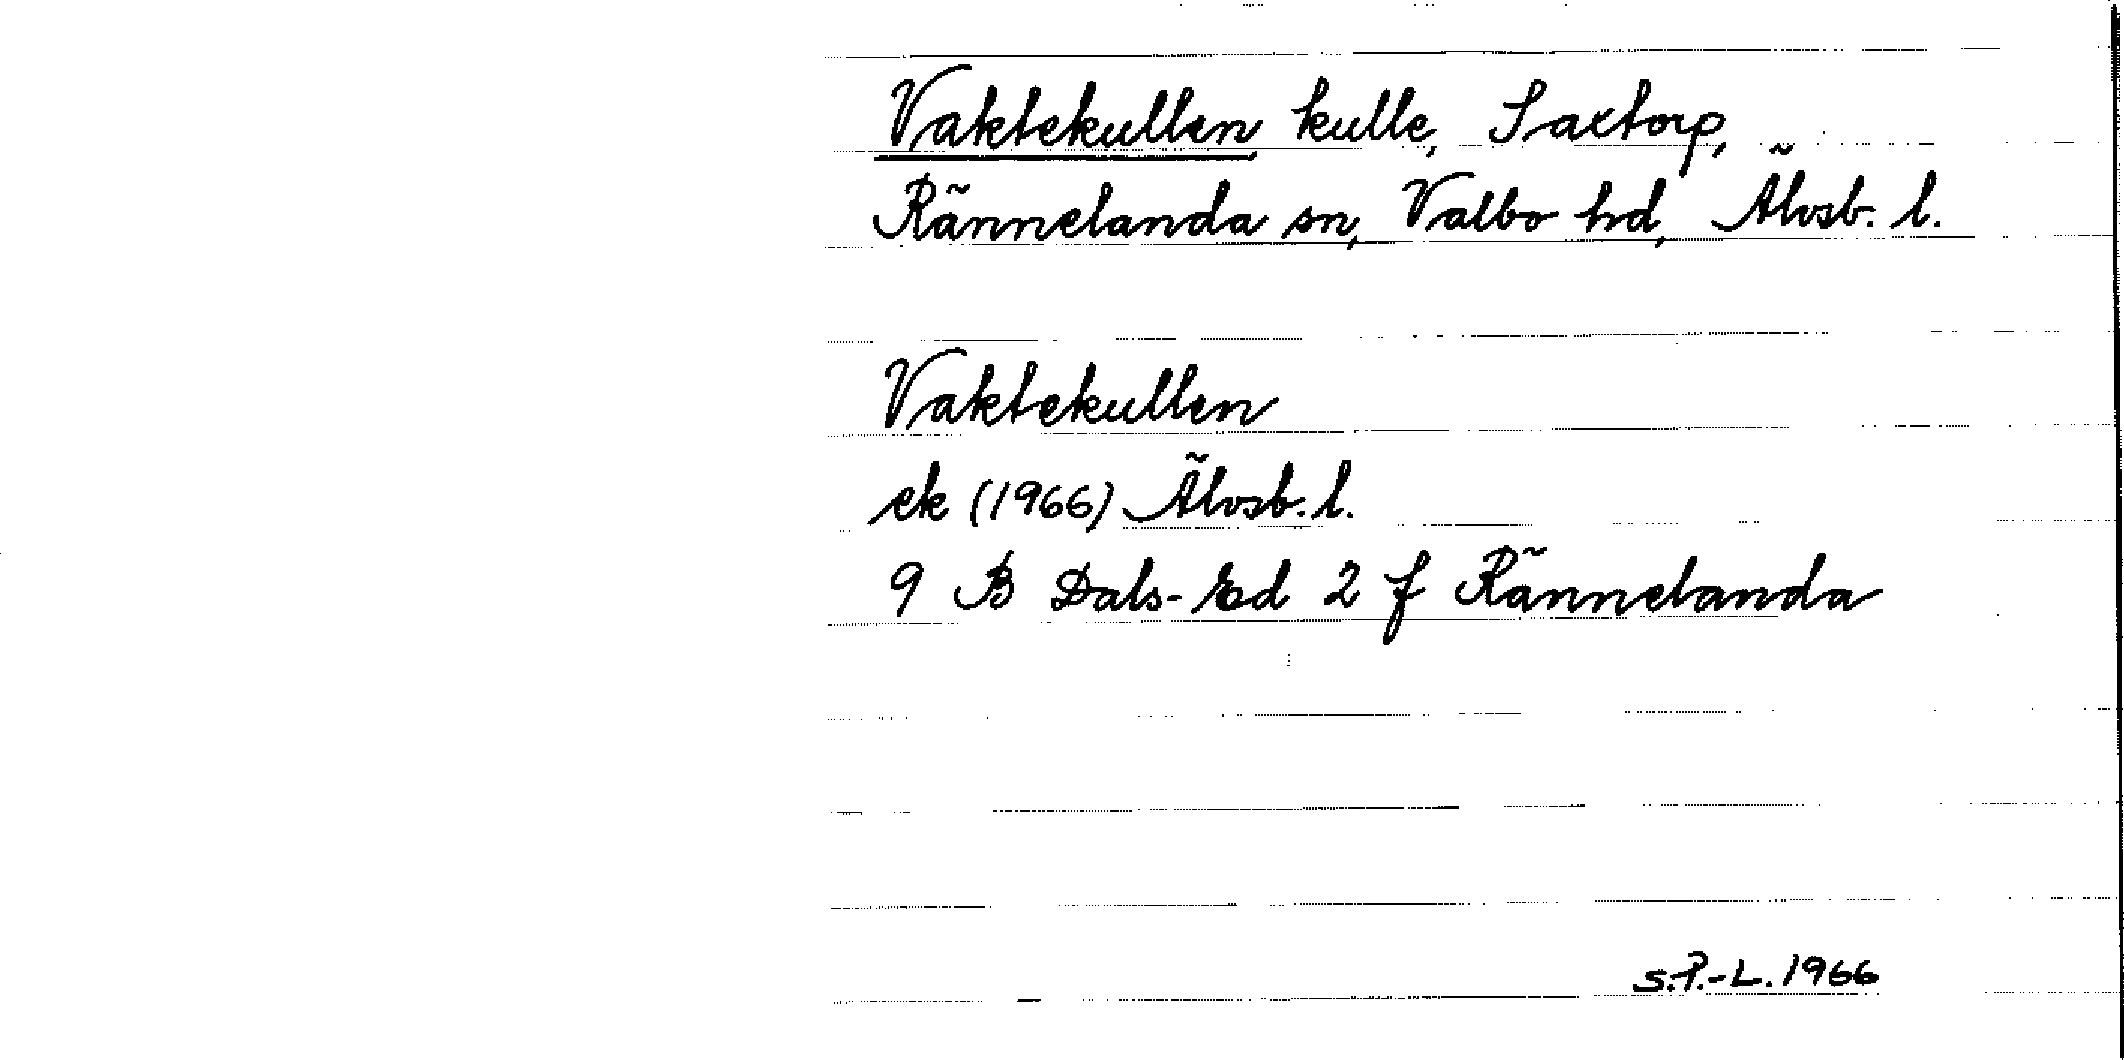 Vaktekullen, kulle, Saxtorp,
Rännelanda sn, Valbo hd, Älvsb. l.
Vaktekullen
ek (1966) Älvsb. l.
9 B Dals-Ed 2 f Rännelanda
S.P.-L. 1966